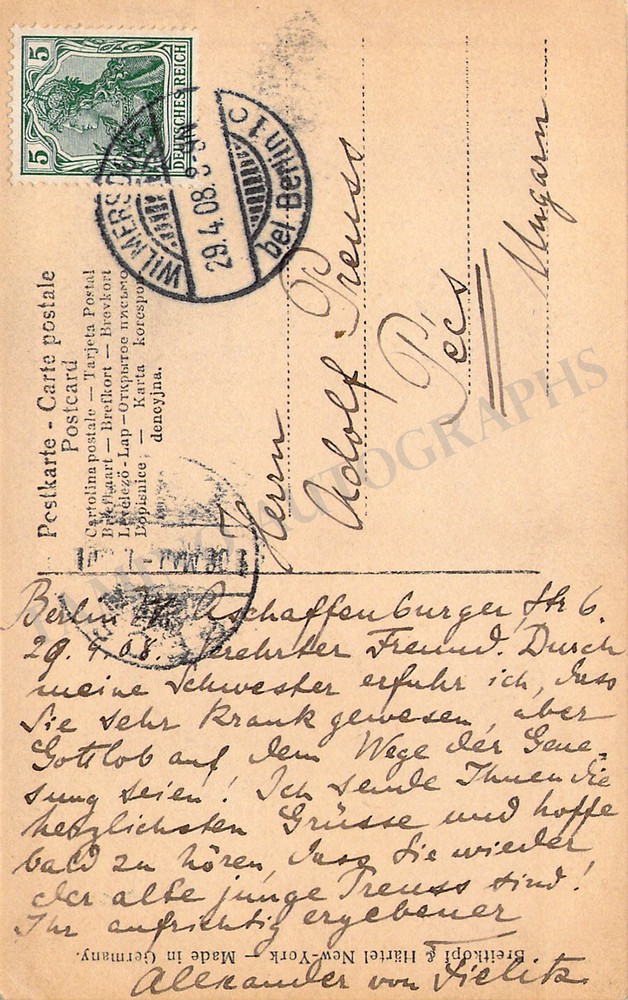 5
5
DEUTSCHES REICH
WILMERSDORF
29.4.08. 8-9N.
bei Berlin 1 c
Postkarte - Carte postale
Postcard
Cartolina postale — Tarjeta Postal
Briefkaart — Brefkort — Brevkort
Levelező-Lap — Открытое письмо
Dopisnice — Karta korespon-
dencyjna.
Herrn
Adolf Preuss
Pécs
Ungarn
Berlin W. Aschaffenburger Str 6.
29.4.08. Verehrter Freund. Durch
meine Schwester erfuhr ich, dass
Sie sehr krank gewesen, aber
Gottlob auf dem Wege der Gene-
sung seien! Ich sende Ihnen die
herzlichsten Grüsse und hoffe
bald zu hören, dass Sie wieder
der alte junge Preuss sind!
Ihr aufrichtig ergebener
Alexander von Fielitz
Breitkopf & Härtel New-York — Made in Germany.
AUTOGRAPHS